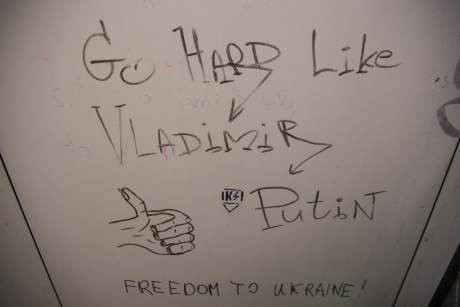 Go HARD Like
VLADiMiR
PutiN
FREEDOM TO UKRAINE!